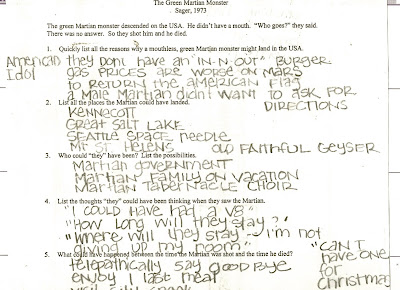 The Green Martian Monster
Sager, 1973
The green Martian monster descended on the USA. He didn't have a mouth. "Who goes?" they said.
There was no answer. So they shot him and he died.
1. Quickly list all the reasons why a mouthless, green Martian monster might land in the USA.
American Idol
they Dont have an "IN-N-OUT" BURGER
gas PRICES are WORSE on MARS
to RETURN the aMERICAN FLAG
a Male Martian didn't want to ask FOR
DIRECTIONS
2. List all the places the Martian could have landed.
KENNECOTT
GREAT SALT LAKE
SEATTLE SPACE NEEDLE
Mt ST HELENS OLD FAITHFUL GEYSER
3. Who could "they" have been? List the possibilities.
Martian government
Martian FAMILY ON VACATION
Martian TABERNACLE CHOIR
4. List the thoughts "they" could have been thinking when they saw the Martian.
"I COULD Have HaD a V8"
"How Long will they Stay?"
"Where will they stay - I'm not
giving up my room"
"CAN'T
have one
for
Christmas
5. What could have happened between the time the Martian was shot and the time he died?
telepathically say goodbye
enjoy 1 last meal